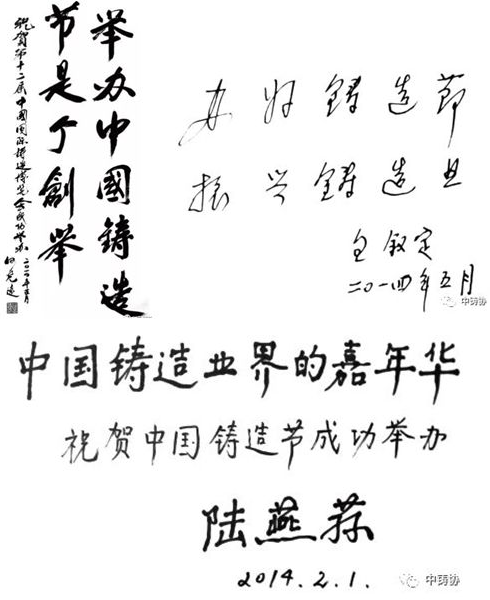 举办中國鑄造
节是个創举
祝贺第十二届中國国际铸造博览会成功举办
二〇一四年五月
何光远
办好鑄造節
振兴鑄造业
二〇一四年五月
中铸协
中国铸造业界的嘉年华
祝贺中国铸造节成功举办
陆燕荪
2014.2.1.
中铸协